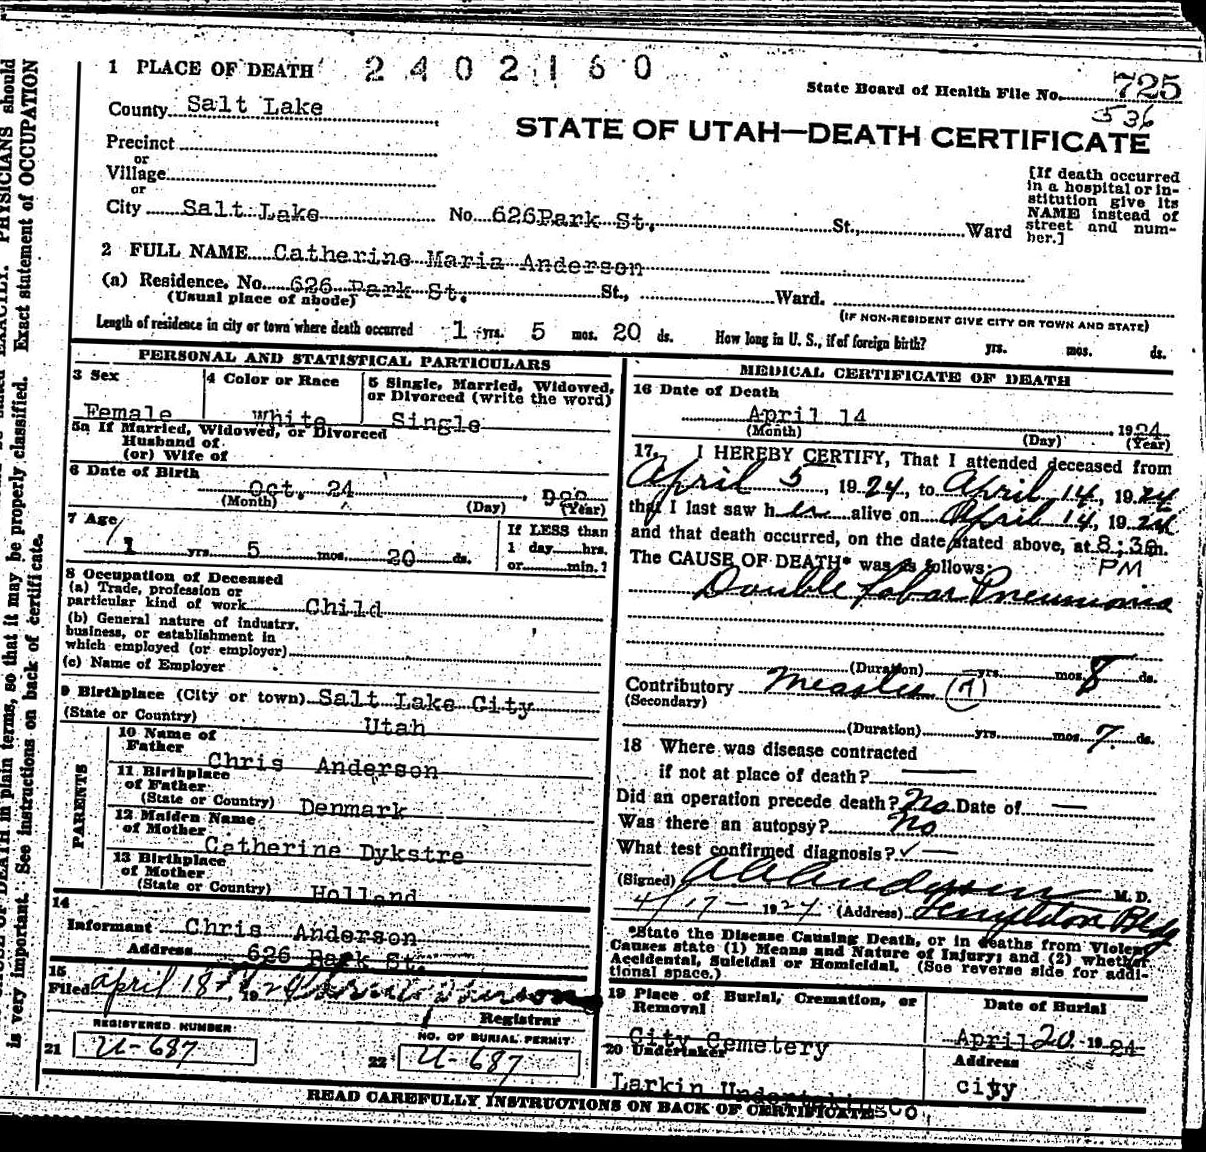 1 PLACE OF DEATH 2402160
State Board of Health File No. 725
536
County Salt Lake
STATE OF UTAH—DEATH CERTIFICATE
Precinct
or
Village
or
City Salt Lake No. 626 Park St. St., Ward
[If death occurred
in a hospital or in-
stitution give its
NAME instead of
street and num-
ber.]
2 FULL NAME Catherine Maria Anderson
(a) Residence. No. 626 Park St. St., Ward.
(Usual place of abode)
(IF NON-RESIDENT GIVE CITY OR TOWN AND STATE)
Length of residence in city or town where death occurred 1 yrs. 5 mos. 20 ds. How long in U. S., if of foreign birth? yrs. mos. ds.
PERSONAL AND STATISTICAL PARTICULARS
3 Sex
Female
4 Color or Race
White
5 Single, Married, Widowed,
or Divorced (write the word)
Single
5a If Married, Widowed, or Divorced
Husband of
(or) Wife of
6 Date of Birth
Oct. 24
(Month) (Day) (Year)
7 Age
1 yrs. 5 mos. 20 ds.
If LESS than
1 day hrs.
or min.?
8 Occupation of Deceased
(a) Trade, profession or
particular kind of work Child
(b) General nature of industry,
business, or establishment in
which employed (or employer)
(c) Name of Employer
9 Birthplace (City or town) Salt Lake City
(State or Country) Utah
PARENTS
10 Name of
Father
Chris Anderson
11 Birthplace
of Father
(State or Country) Denmark
12 Maiden Name
of Mother
Catherine Dykstre
13 Birthplace
of Mother
(State or Country) Holland
14
Informant Chris Anderson
Address 626 Park St.
15
Filed April 18, 192
Registrar
REGISTERED NUMBER
21 U-687
NO. OF BURIAL PERMIT
22 U-687
MEDICAL CERTIFICATE OF DEATH
16 Date of Death
April 14 1924
(Month) (Day) (Year)
17. I HEREBY CERTIFY, That I attended deceased from
April 5, 1924, to April 14, 1924
that I last saw her alive on April 14, 1924
and that death occurred, on the date stated above, at 8:30 m.
PM
The CAUSE OF DEATH* was as follows:
Double Lobar Pneumonia
(Duration) yrs. mos. 8 ds.
Contributory Measles (7)
(Secondary)
(Duration) yrs. mos. 7 ds.
18 Where was disease contracted
if not at place of death? —
Did an operation precede death? No Date of —
Was there an autopsy? No
What test confirmed diagnosis? ✓ —
(Signed) M. D.
4/17- 1924 (Address) Templeton Bldg
*State the Disease Causing Death, or in deaths from Violent
Causes state (1) Means and Nature of Injury; and (2) whether
Accidental, Suicidal or Homicidal. (See reverse side for addi-
tional space.)
19 Place of Burial, Cremation, or
Removal
City Cemetery
Date of Burial
April 20 1924
20 Undertaker
Larkin Undertaking Co.
Address
city
READ CAREFULLY INSTRUCTIONS ON BACK OF CERTIFICATE
PHYSICIANS should
OF DEATH in plain terms, so that it may be properly classified. Exact statement of OCCUPATION
is very important. See instructions on back of certificate.